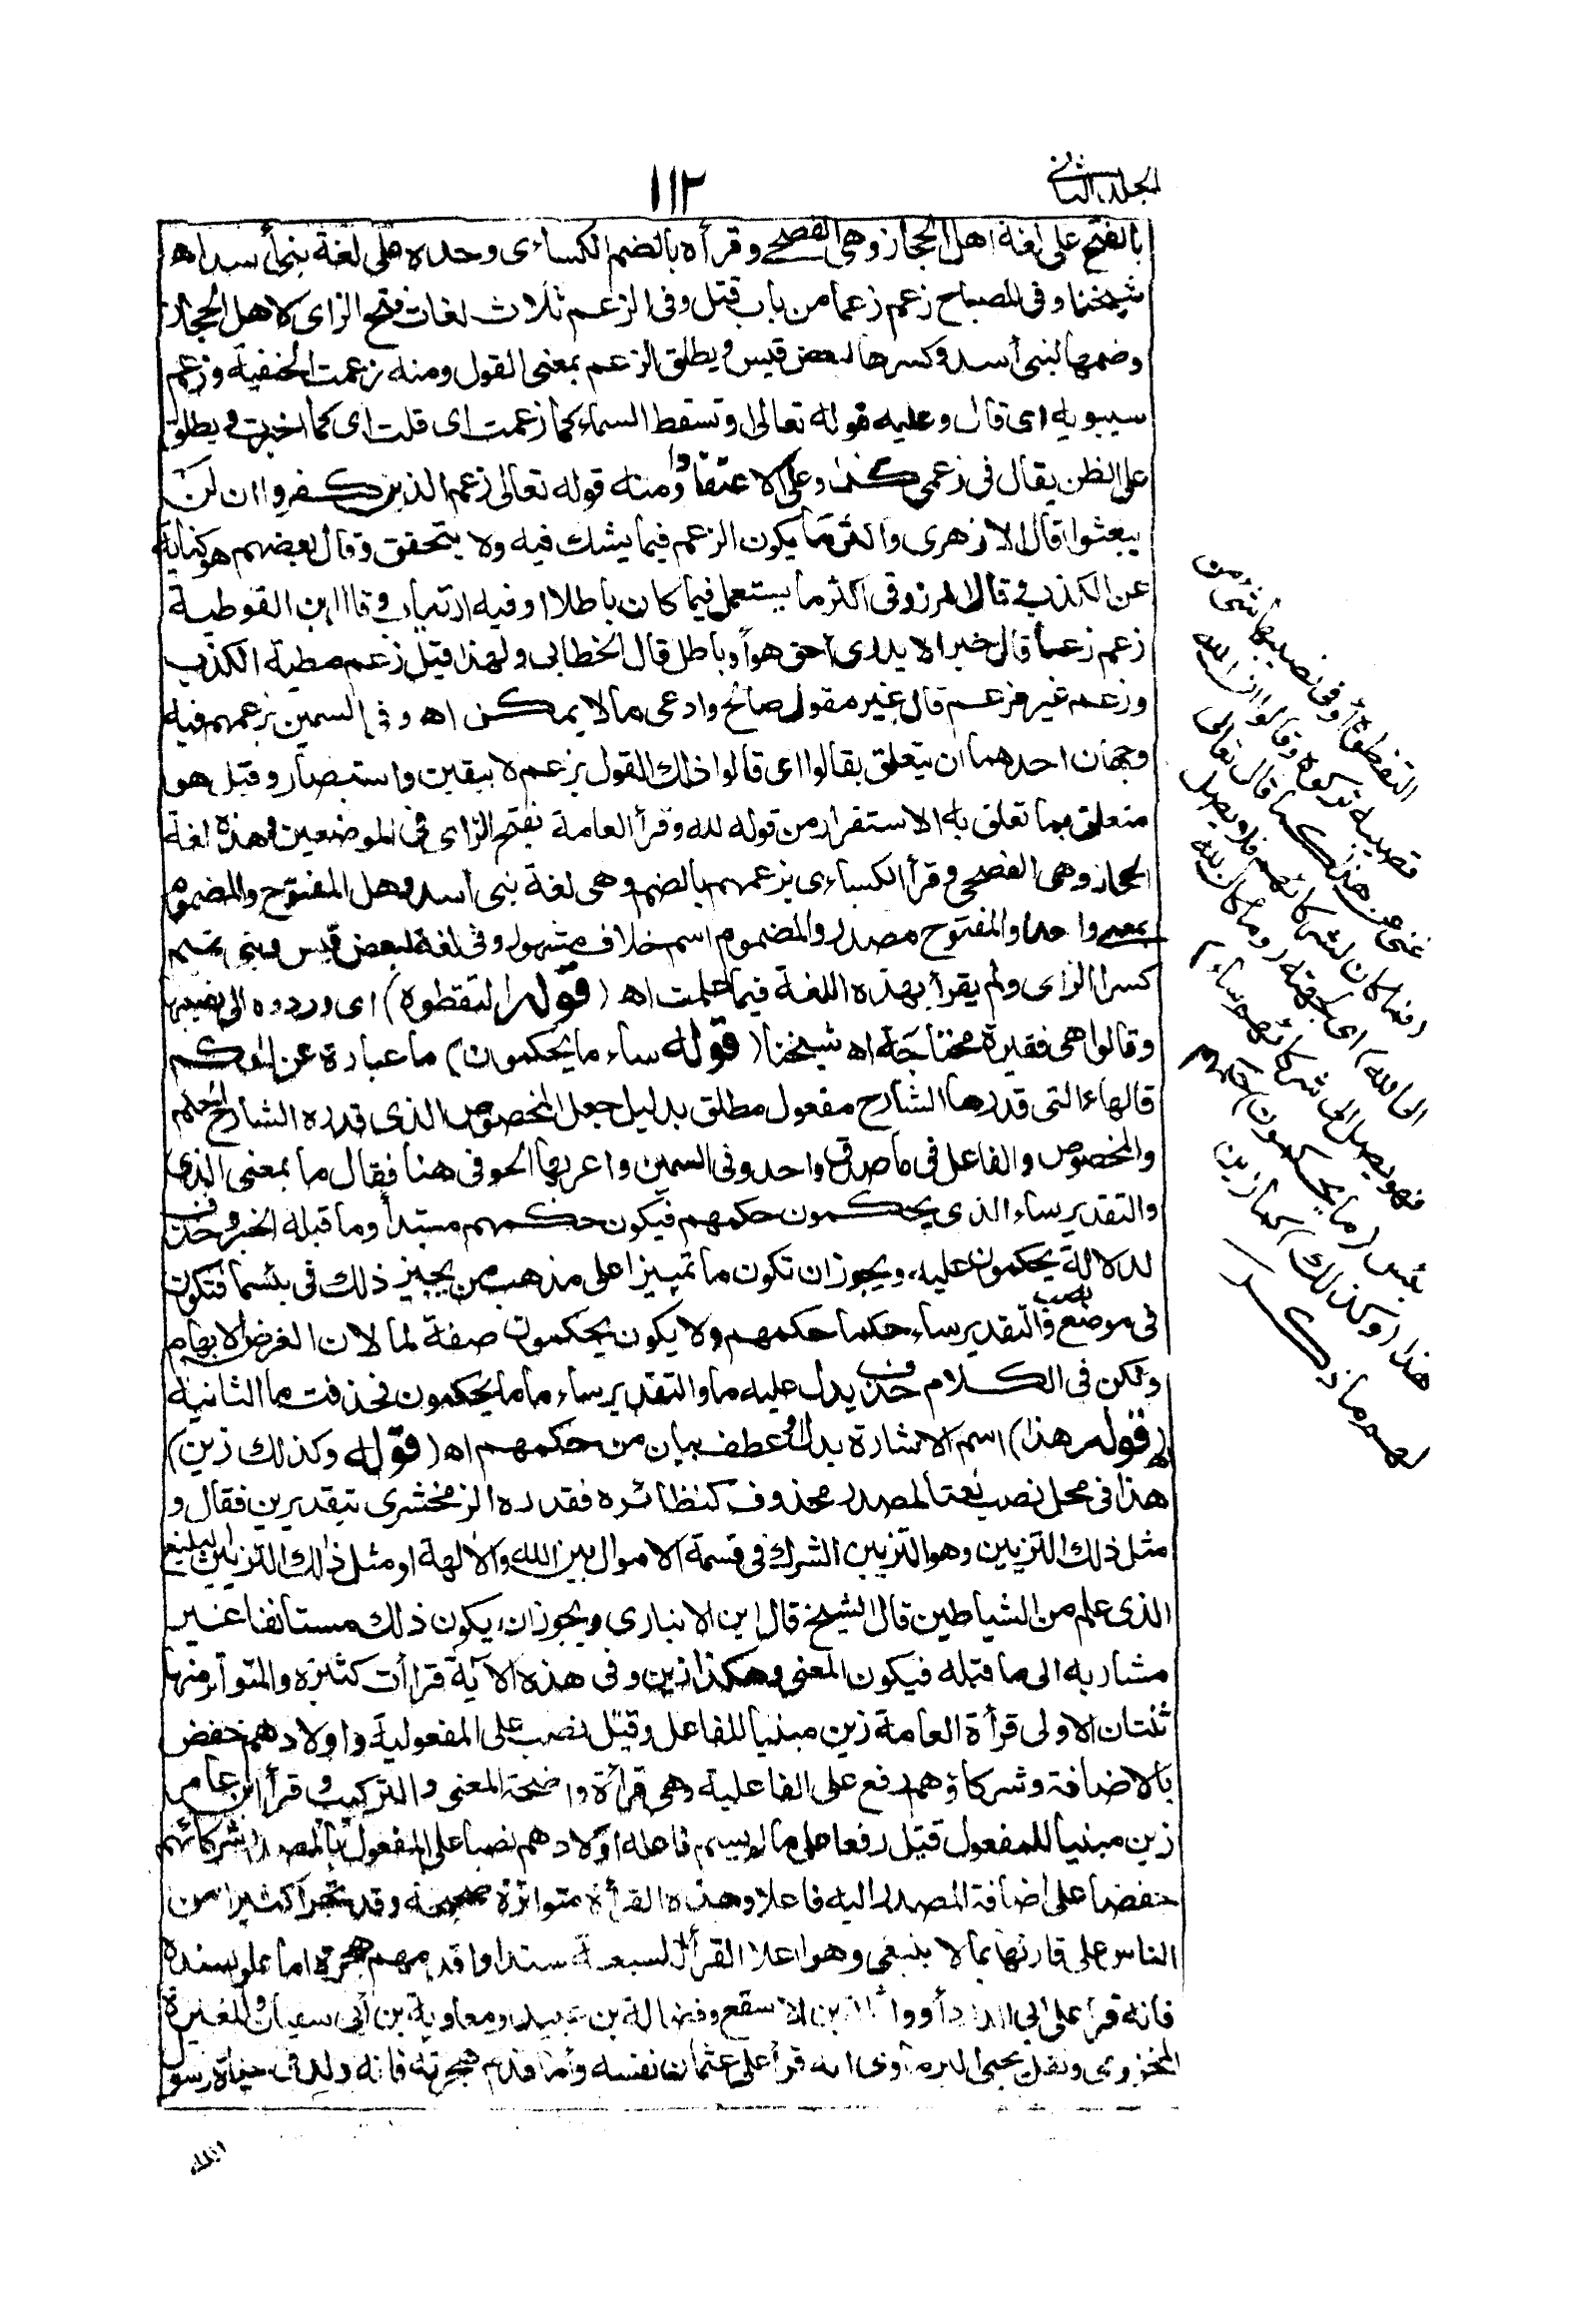 الجلد الثانى
١١٢
بالفتح على لغة اهل الحجاز وهى الفصحى وقرأه بالضم الكساءى وحده على لغة بنى أسد اه
شيخنا وفى المصباح زعم زعما من باب قتل وفى الزعم ثلاث لغات فتح الزاى لاهل الحجاز
وضمها لبنى أسد وكسرها لبعض قيس ويطلق الزعم بمعنى القول ومنه زعمت الحنفية وزعم
سيبويه اى قال وعليه قوله تعالى او تسقط السماء كما زعمت اى قلت اى كما اخبرت ويطلق
على الظن يقال فى زعمى كذا وعلى الاعتقاد ومنه قوله تعالى زعم الذين كفروا ان لن
يبعثوا قال الازهرى واكثر ما يكون الزعم فيما يشك فيه ولا يتحقق وقال بعضهم هو كناية
عن الكذب وقال المرزوقى اكثر ما يستعمل فيما كان باطلا او فيه ارتياب وقال ابن القوطية
زعم زعما قال خبرا لا يدرى أحق هو أو باطل قال الخطابى ولهذا قيل زعم مطية الكذب
وزعم غير مزعم قال غير مقول صالح وادعى مالا يمكن اه وفى السمين بزعمهم فيه
وجهان احدهما ان يتعلق بقالوا اى قالوا ذلك القول بزعم لا بيقين واستبصار وقيل هو
متعلق بما تعلق به الاستقرار من قوله لله وقرأ العامة بفتح الزاى فى الموضعين وهذه لغة
الحجاز وهى الفصحى وقرأ الكساءى بزعمهم بالضم وهى لغة بنى أسد وهل المفتوح والمضموم
بمعنى واحد او المفتوح مصدر والمضموم اسم خلاف مشهور وفى لغة لبعض قيس وبنى تميم
كسر الزاى ولم يقرأ بهذه اللغة فيما علمت اه (قوله التقطوه) اى وردوه الى نصيبها
وقالوا هى فقيرة محتاجة اه شيخنا (قوله ساء ما يحكمون) ما عبارة عن الحكم
فالهاء التى قدرها الشارح مفعول مطلق بدليل جعل المخصوص الذى قدره الشارح الحكم
والمخصوص والفاعل فى ماصدق واحد وفى السمين واعربها الحوفى هنا فقال ما بمعنى الذى
والتقدير ساء الذى يحكمون حكمهم فيكون حكمهم مبتدأ وما قبله الخبر وحذف
لدلالة يحكمون عليه، ويجوز ان تكون ما تمييزا على مذهب من يجيز ذلك فى بئسما فتكون
فى موضع نصب والتقدير ساء حكما حكمهم ولا يكون يحكمون صفة لما لان الغرض الابهام
ولكن فى الكلام حذف يدل عليه ما والتقدير ساء ما ما يحكمون فحذفت ما الثانية
اه (قوله هذا) اسم الاشارة بدل أو عطف بيان من حكمهم اه (قوله وكذلك زين)
هذا فى محل نصب نعتا لمصدر محذوف كنظائره فقدره الزمخشرى تبقديرين فقال و
مثل ذلك التزيين وهو التزيين الشرك فى قسمة الاموال بين الله والالهة او مثل ذلك التزيين البليغ
الذى علم من الشياطين قال الشيخ قال ابن الانبارى ويجوز ان يكون ذلك مستأنفا غير
مشار به الى ما قبله فيكون المعنى وهكذا زين وفى هذه الآية قرأت كثيرة والمتواتر منها
ثنتان الاولى قرأة العامة زين مبنيا للفاعل وقتل نصب على المفعولية واولادهم خفض
بالاضافة وشركاؤهم رفع على الفاعلية وهى قرأة واضحة المعنى والتركيب وقرأ ابن عامر
زين مبنيا للمفعول قتل رفعا على ما لم يسم فاعله اولادهم نصبا على المفعول بالمصدر شركائهم
خفضا على اضافة المصدر اليه فاعلا وهذه القرأة متواترة صحيحة وقد تجرأ كثير من
الناس على قارئها بما لا ينبغى وهو اعلا القرأ السبعة سندا واقدمهم هجرة اما علو سنده
فانه قرأ على ابى الدرداء وواثلة بن الاسقع وفضالة بن عبيد ومعاوية بن أبى سفيان والمغيرة
المخزومى ونقل يحيى الذمارى انه قرأ على عثمان نفسه وأما قدم هجرته فانه ولد فى حياة رسول
التقطوه أو فى نصيبها شئ من
نصيبه تركوه وقالوا ان الله
غنى عن هذا كما قال تعالى
(فما كان لشركائهم فلا يصل
الى الله) اى لجهته (وما كان لله
فهو يصل الى شركائهم ساء)
بئس (ما يحكمون) حكمهم
هذا (وكذلك) كما زين
لهم ما ذكر